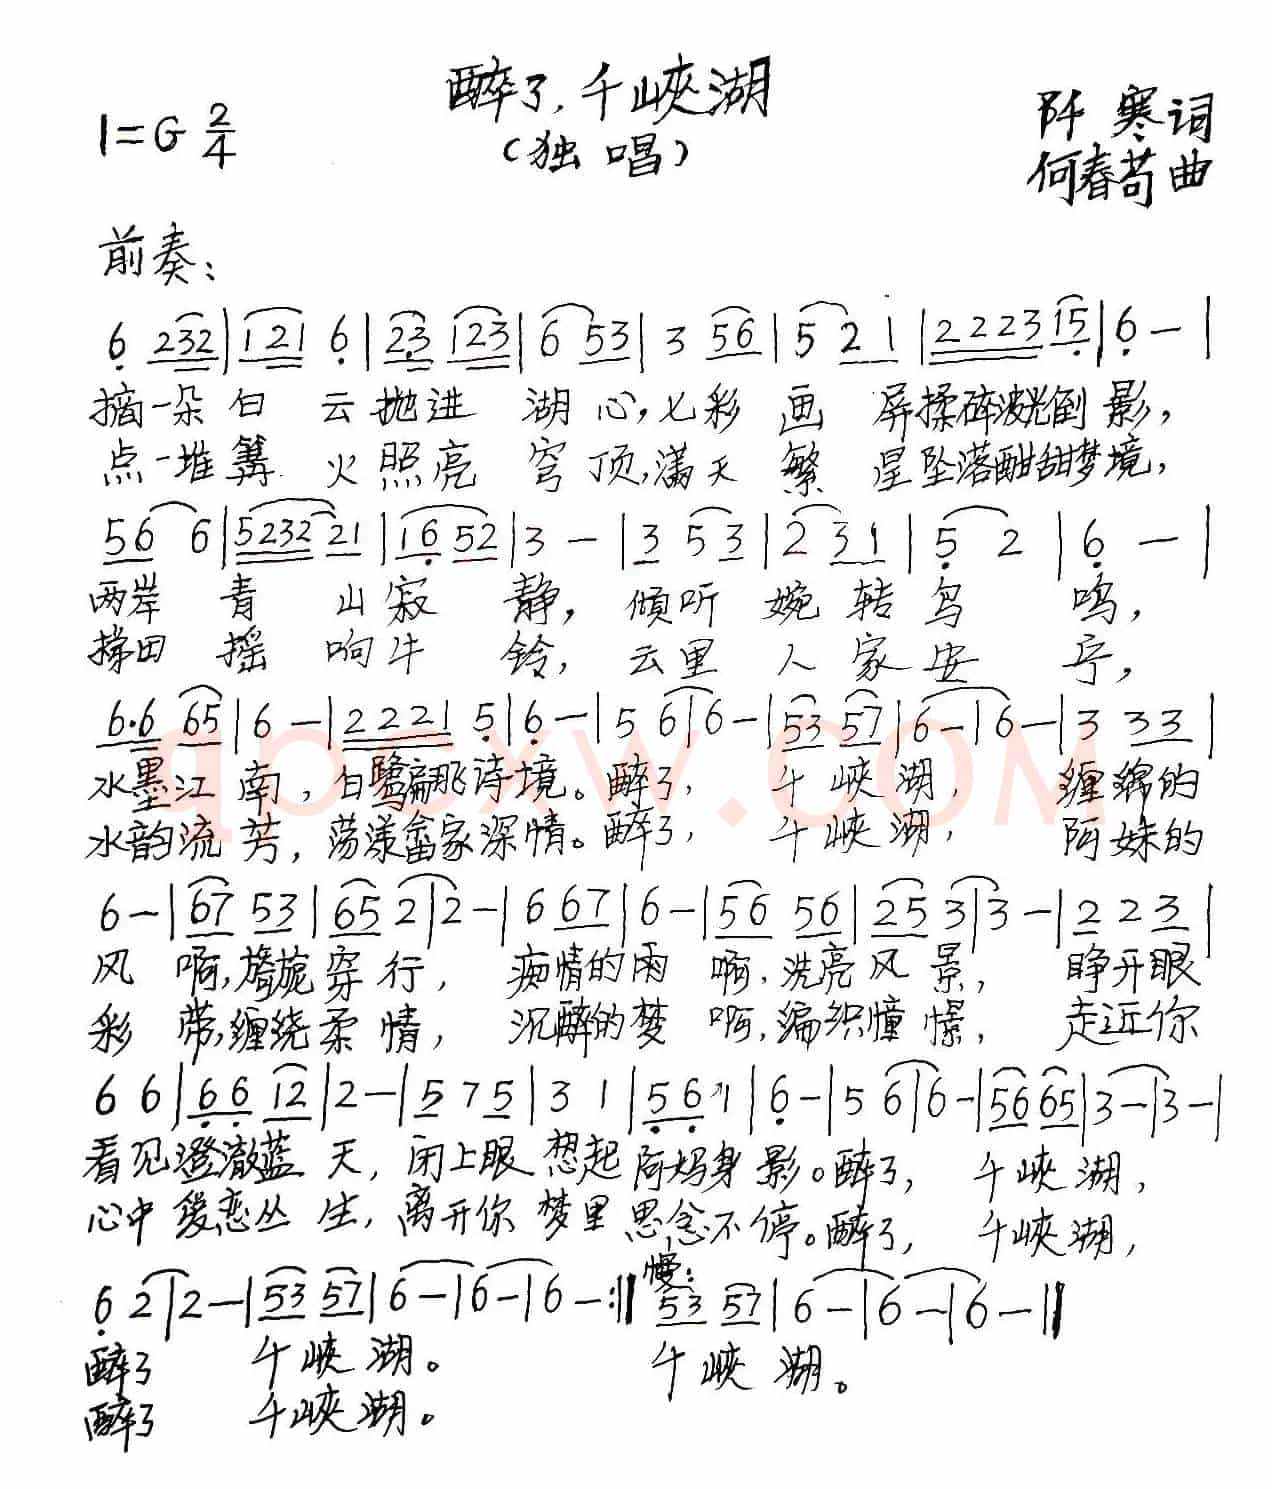 醉了,千峡湖
(独唱)
1=G 2/4
阡寒词
何春苟曲
前奏:
6 232|121 6|23 123|6 53|3 56|5 21|2223 15|6 —|
摘一朵白云抛进湖心,七彩画屏揉碎波光倒影,
点一堆篝火照亮穹顶,满天繁星坠落酣甜梦境,
56 6|5232 21|16 52|3 —|3 5 3|2 31|5 2|6 —|
两岸青山寂静,倾听婉转鸟鸣,
梯田摇响牛铃,云里人家安宁,
6·6 65|6 —|2221 5|6 —|5 6|6 —|53 57|6 —|6 —|3 33|
水墨江南,白鹭翩飞诗境。醉了,千峡湖,缠绵的
水韵流芳,荡漾畲家深情。醉了,千峡湖,阿妹的
6 —|67 53|65 2|2 —|6 67|6 —|56 56|25 3|3 —|2 2 3|
风啊,旖旎穿行,痴情的雨啊,洗亮风景,睁开眼
彩带,缠绕柔情,沉醉的梦啊,编织憧憬,走近你
6 6|66 12|2 —|5 7 5|3 1|56 1|6 —|5 6|6 —|56 65|3 —|3 —|
看见澄澈蓝天,闭上眼想起阿妈身影。醉了,千峡湖,
心中爱恋丛生,离开你梦里思念不停。醉了,千峡湖,
慢:
6 2|2 —|53 57|6 —|6 —|6 —:‖53 57|6 —|6 —|6 —‖
醉了千峡湖。千峡湖。
醉了千峡湖。
qpcxw.COM